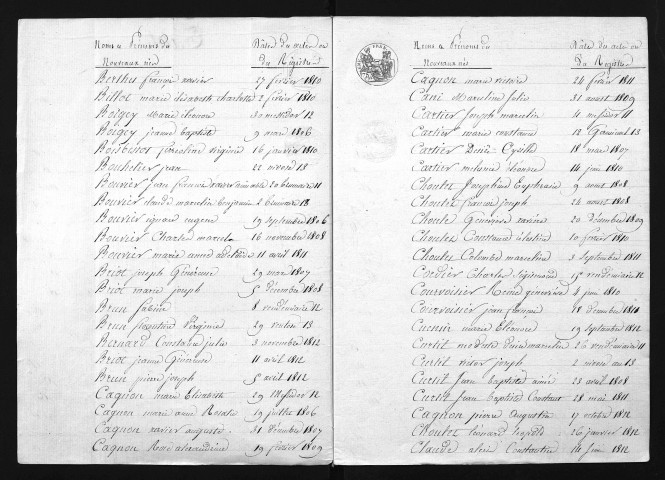 Noms et Prénoms du Nouveaux nés
Dates du acte ou du Registre
Berthet françois xavier 27 février 1810
Billot marie élisabeth charlotte 2 février 1810
Boigey Marie éléonore 30 messidor 12
Boigey jeanne baptiste 9 mars 1806
virginie 16 janvier 1810
Bouhelier jean 22 nivose 13
Bouvier jean françois xavier 20 brumaire 11
Bouvier claude marcelin benjamin 2 brumaire 13
Bouvier ignace eugene 19 septembre 1806
Bouvier Charles marcelin 16 novembre 1808
Bouvier marie anne adelaide 11 avril 1811
Briot joseph Généreuse 29 mars 1807
Briot marie joseph 5 décembre 1808
Brun Sabine 8 vendémiaire 12
Brun Virginie 29 13
Constance julie 3 novembre 1812
Briot jeanne Généreuse 11 avril 1812
Brun pierre joseph 5 avril 1812
Cagnon marie Elisabeth 29 Messidor 12
Cagnon marie anne Rosalie 19 juillet 1806
Cagnon xavier auguste 31 décembre 1807
Cagnon Rose alexandrine 19 février 1809
Noms et Prénoms du Nouveaux nés
Dates du acte ou du Registre
Cagnon marie victoire 24 février 1811
Marceline julie 31 aout 1809
Cartier joseph marcelin 4 messidor 11
Cartier marie constance 12 Germinal 13
Cartier Denis Cyrille 18 mai 1807
Cartier mélanie éléonore 14 juin 1810
Choulet Joséphine Euphrasie 9 aout 1808
Choulet françois joseph 24 aout 1808
Choulet Genevieve xavière 20 décembre 1809
Choulet Constance célestine 10 février 1810
Choulet Colombe marceline 3 septembre 1811
Cordier Charles 15 vendémiaire 12
Courvoisier Rémi généreux 4 juin 1810
Courvoisier jean françois 18 décembre 1810
Cuenin marie Eléonore 19 septembre 1812
Curtit modeste marcelin 26 vendémiaire 11
Curtit victor joseph 2 nivose an 13
Curtit Jean baptiste aimé 23 avril 1808
Curtit Jean baptiste Constant 28 mai 1811
Cagnon pierre Augustin 17 octobre 1812
Choulet léonard léopold 26 janvier 1812
Claude alexis Constantin 14 juin 1812